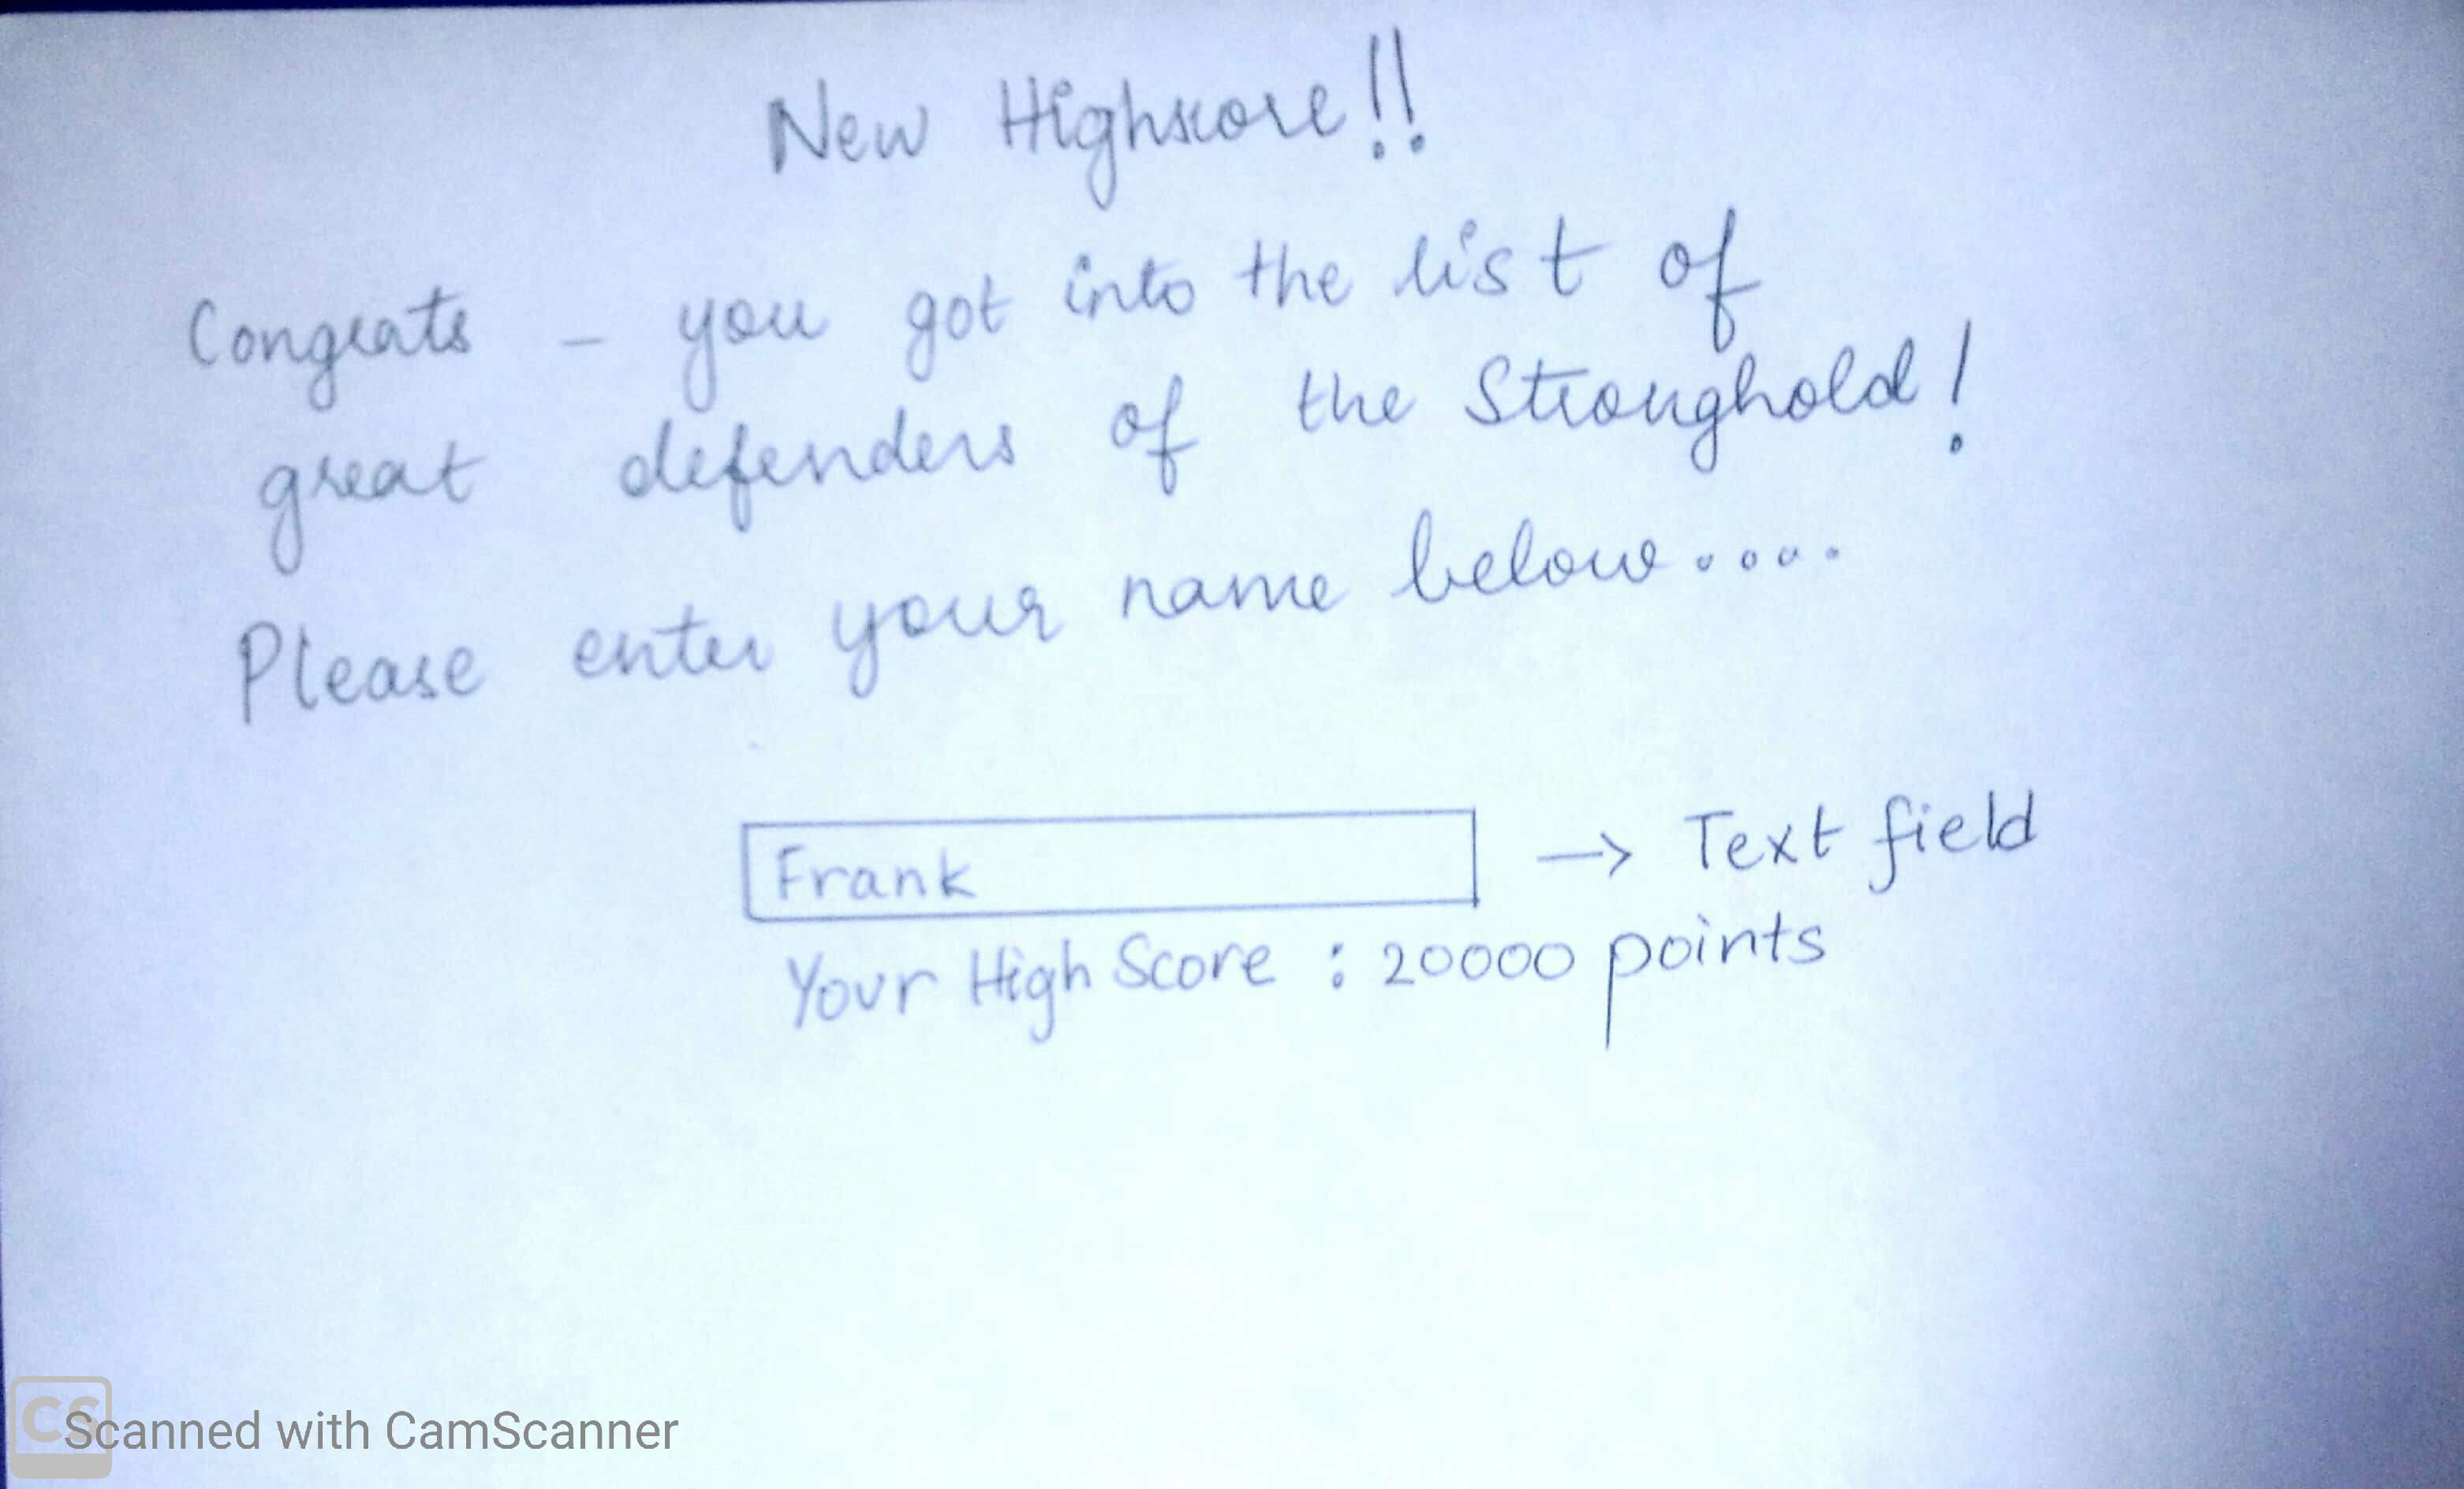 New Highscore!!
Congrats - you got into the list of
great defenders of the Stronghold!
Please enter your name below....
Frank → Text field
Your High Score : 20000 points
CS Scanned with CamScanner